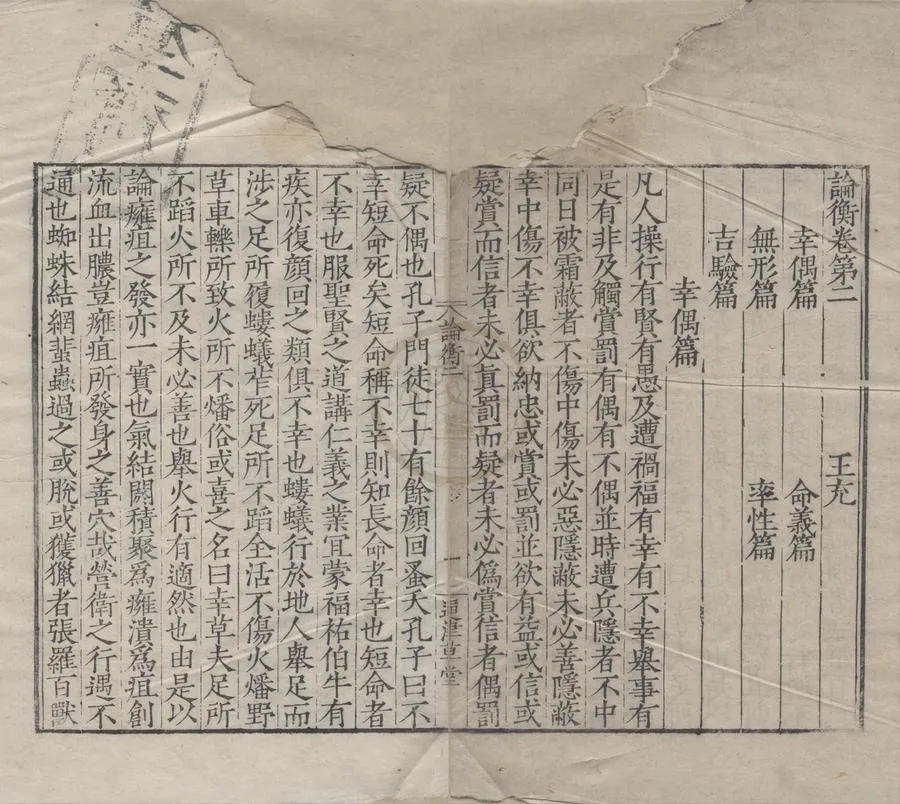 論衡卷第二　王充
幸偶篇　命義篇
無形篇　率性篇
吉驗篇
幸偶篇
凡人操行有賢有愚及遭禍福有幸有不幸舉事有
是有非及觸賞罰有偶有不偶並時遭兵隱者不中
同日被霜蔽者不傷中傷未必惡隱蔽未必善隱蔽
幸中傷不幸俱欲納忠或賞或罰並欲有益或信或
疑賞而信者未必真罰而疑者未必偽賞信者偶罰
論衡二
一
通津草堂
疑不偶也孔子門徒七十有餘顏回蚤夭孔子曰不
幸短命死矣短命稱不幸則知長命者幸也短命者
不幸也服聖賢之道講仁義之業冝蒙福祐伯牛有
疾亦復顏回之類俱不幸也螻蟻行於地人舉足而
涉之足所履螻蟻苲死足所不蹈全活不傷火燔野
草車轢所致火所不燔俗或喜之名曰幸草夫足所
不蹈火所不及未必善也舉火行有適然也由是以
論癰疽之發亦一實也氣結閼積聚為癰潰為疽創
流血出膿豈癰疽所發身之善穴哉營衛之行遇不
通也蜘蛛結網蜚蟲過之或脫或獲獵者張羅百獸